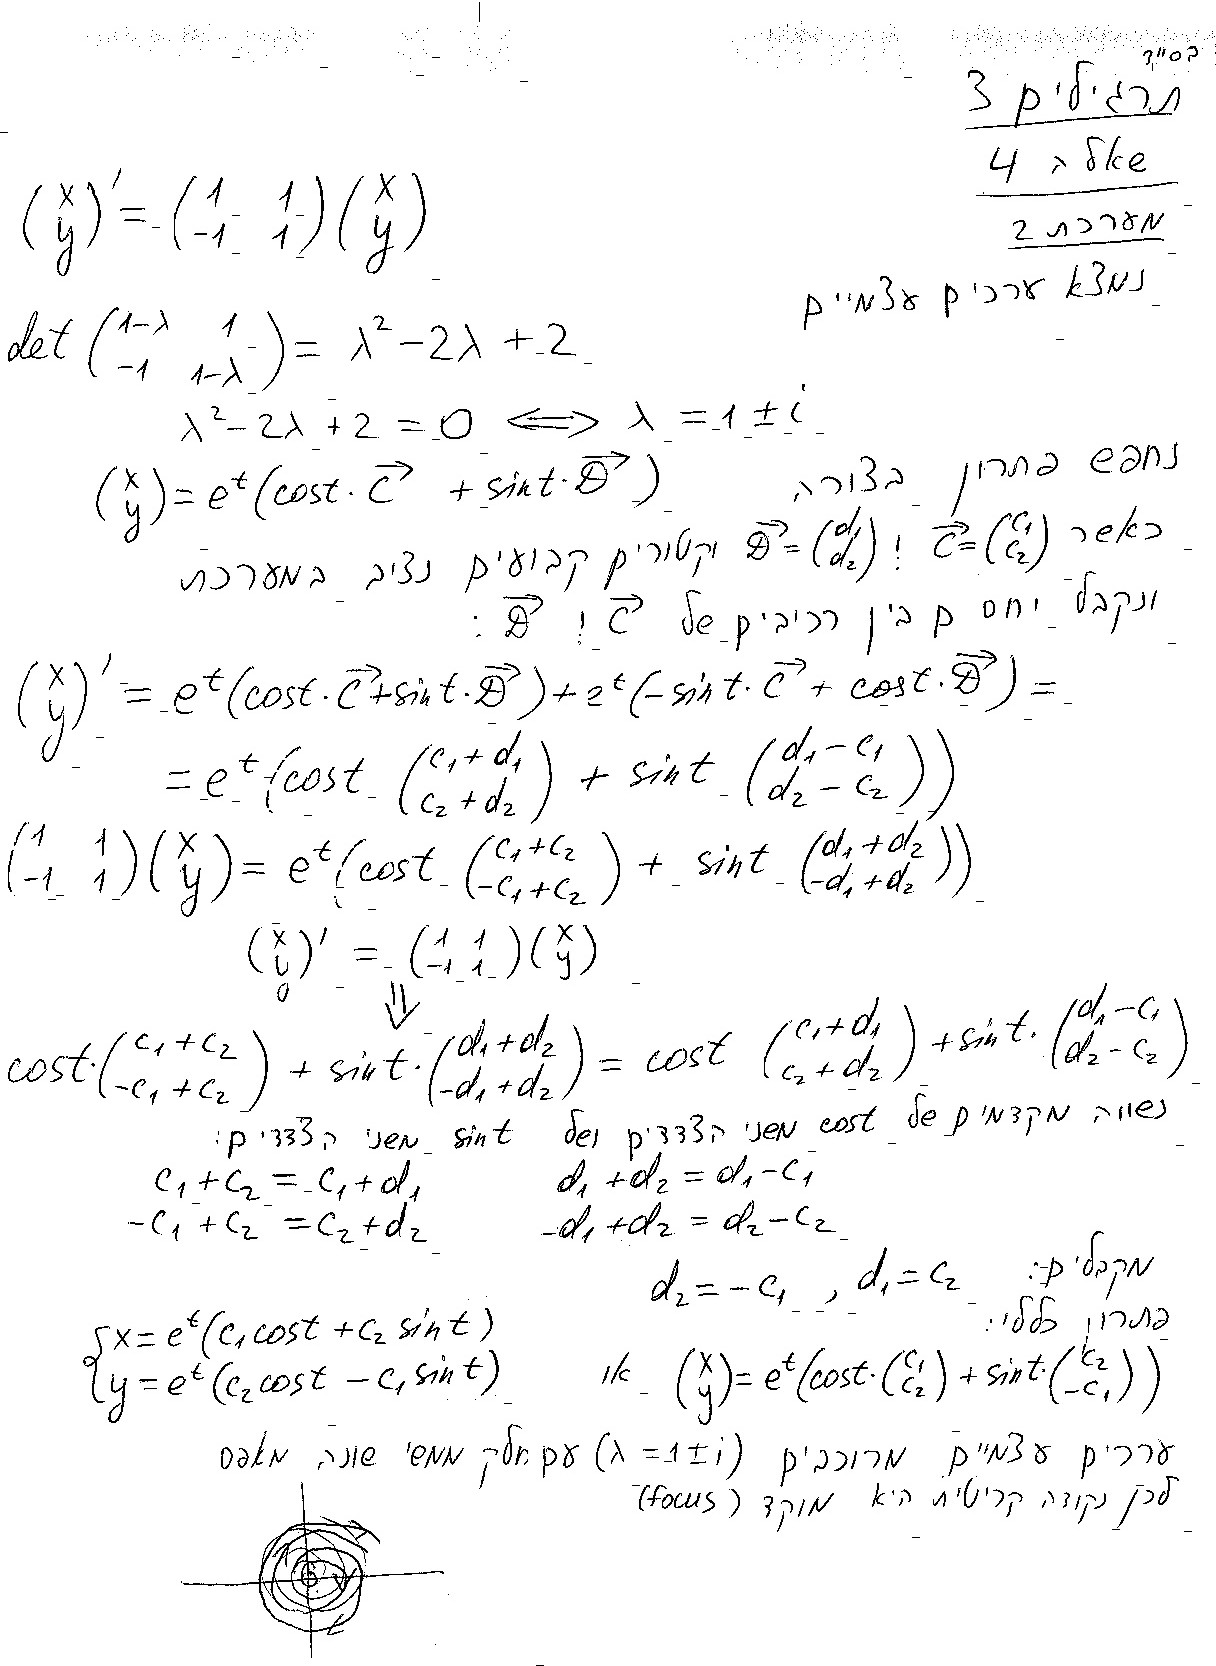 בס״ד
תרגילים 3
שאלה 4
מערכת 2
(x y)' = (1 1 -1 1)(x y)
נמצא ערכים עצמיים
det (1-λ 1 -1 1-λ) = λ² - 2λ + 2
λ² - 2λ + 2 = 0 ⟺ λ = 1 ± i
נחפש פתרון בצורה (x y) = e^t (cost · C⃗ + sint · D⃗)
כאשר C⃗ = (c₁ c₂) ו D⃗ = (d₁ d₂) וקטורים קבועים נציב במערכת
ונקבל יחסים בין רכיבים של C⃗ ו D⃗ :
(x y)' = e^t (cost · C⃗ + sint · D⃗) + e^t (-sint · C⃗ + cost · D⃗) =
= e^t (cost (c₁+d₁ c₂+d₂) + sint (d₁-c₁ d₂-c₂))
(1 1 -1 1)(x y) = e^t (cost (c₁+c₂ -c₁+c₂) + sint (d₁+d₂ -d₁+d₂))
(x y)' = (1 1 -1 1)(x y)
⇓
cost · (c₁+c₂ -c₁+c₂) + sint · (d₁+d₂ -d₁+d₂) = cost (c₁+d₁ c₂+d₂) + sint · (d₁-c₁ d₂-c₂)
נשווה מקדמים של cost משני הצדדים ושל sint משני הצדדים:
c₁+c₂ = c₁+d₁ d₁+d₂ = d₁-c₁
-c₁+c₂ = c₂+d₂ -d₁+d₂ = d₂-c₂
מקבלים: d₂ = -c₁ , d₁ = c₂
פתרון כללי:
(x y) = e^t (cost · (c₁ c₂) + sint · (c₂ -c₁)) או
{ x = e^t (c₁ cost + c₂ sint)
y = e^t (c₂ cost - c₁ sint)
ערכים עצמיים מרוכבים (λ = 1 ± i) עם חלק ממשי שונה מאפס
לכן נקודה קריטית היא מוקד (focus)